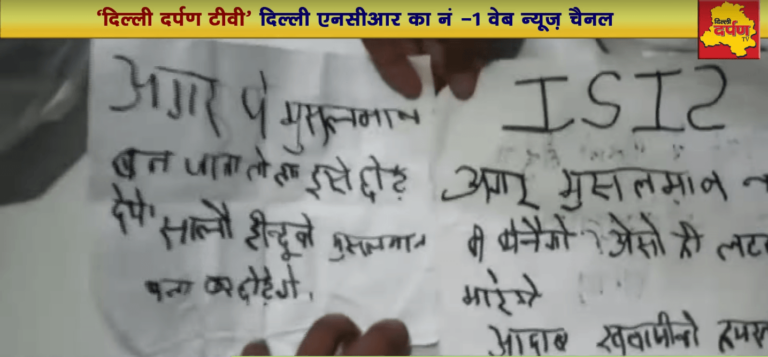 ‘दिल्ली दर्पण टीवी’ दिल्ली एनसीआर का नं -1 वेब न्यूज़ चैनल
दिल्ली
दर्पण
TV
अगर ये मुसलमान
बन जाता तो हम इसे छोड़
देते सालो हीन्दू को मुसलमान
बना कर छोड़ेगे.
ISIS
अगर मुसलमान न
ही बनेंगे जैसो ही लट
मारेगे
आदाब